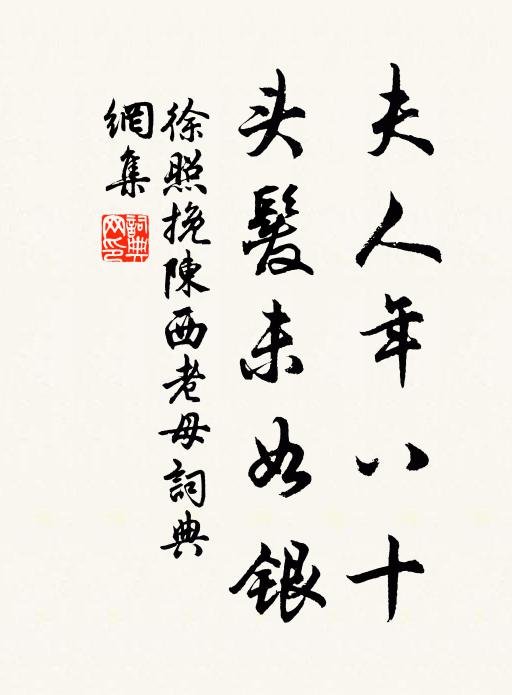 夫人年八十
头髮未如银
徐照挽陳西老母詞典
網集
詞典網印